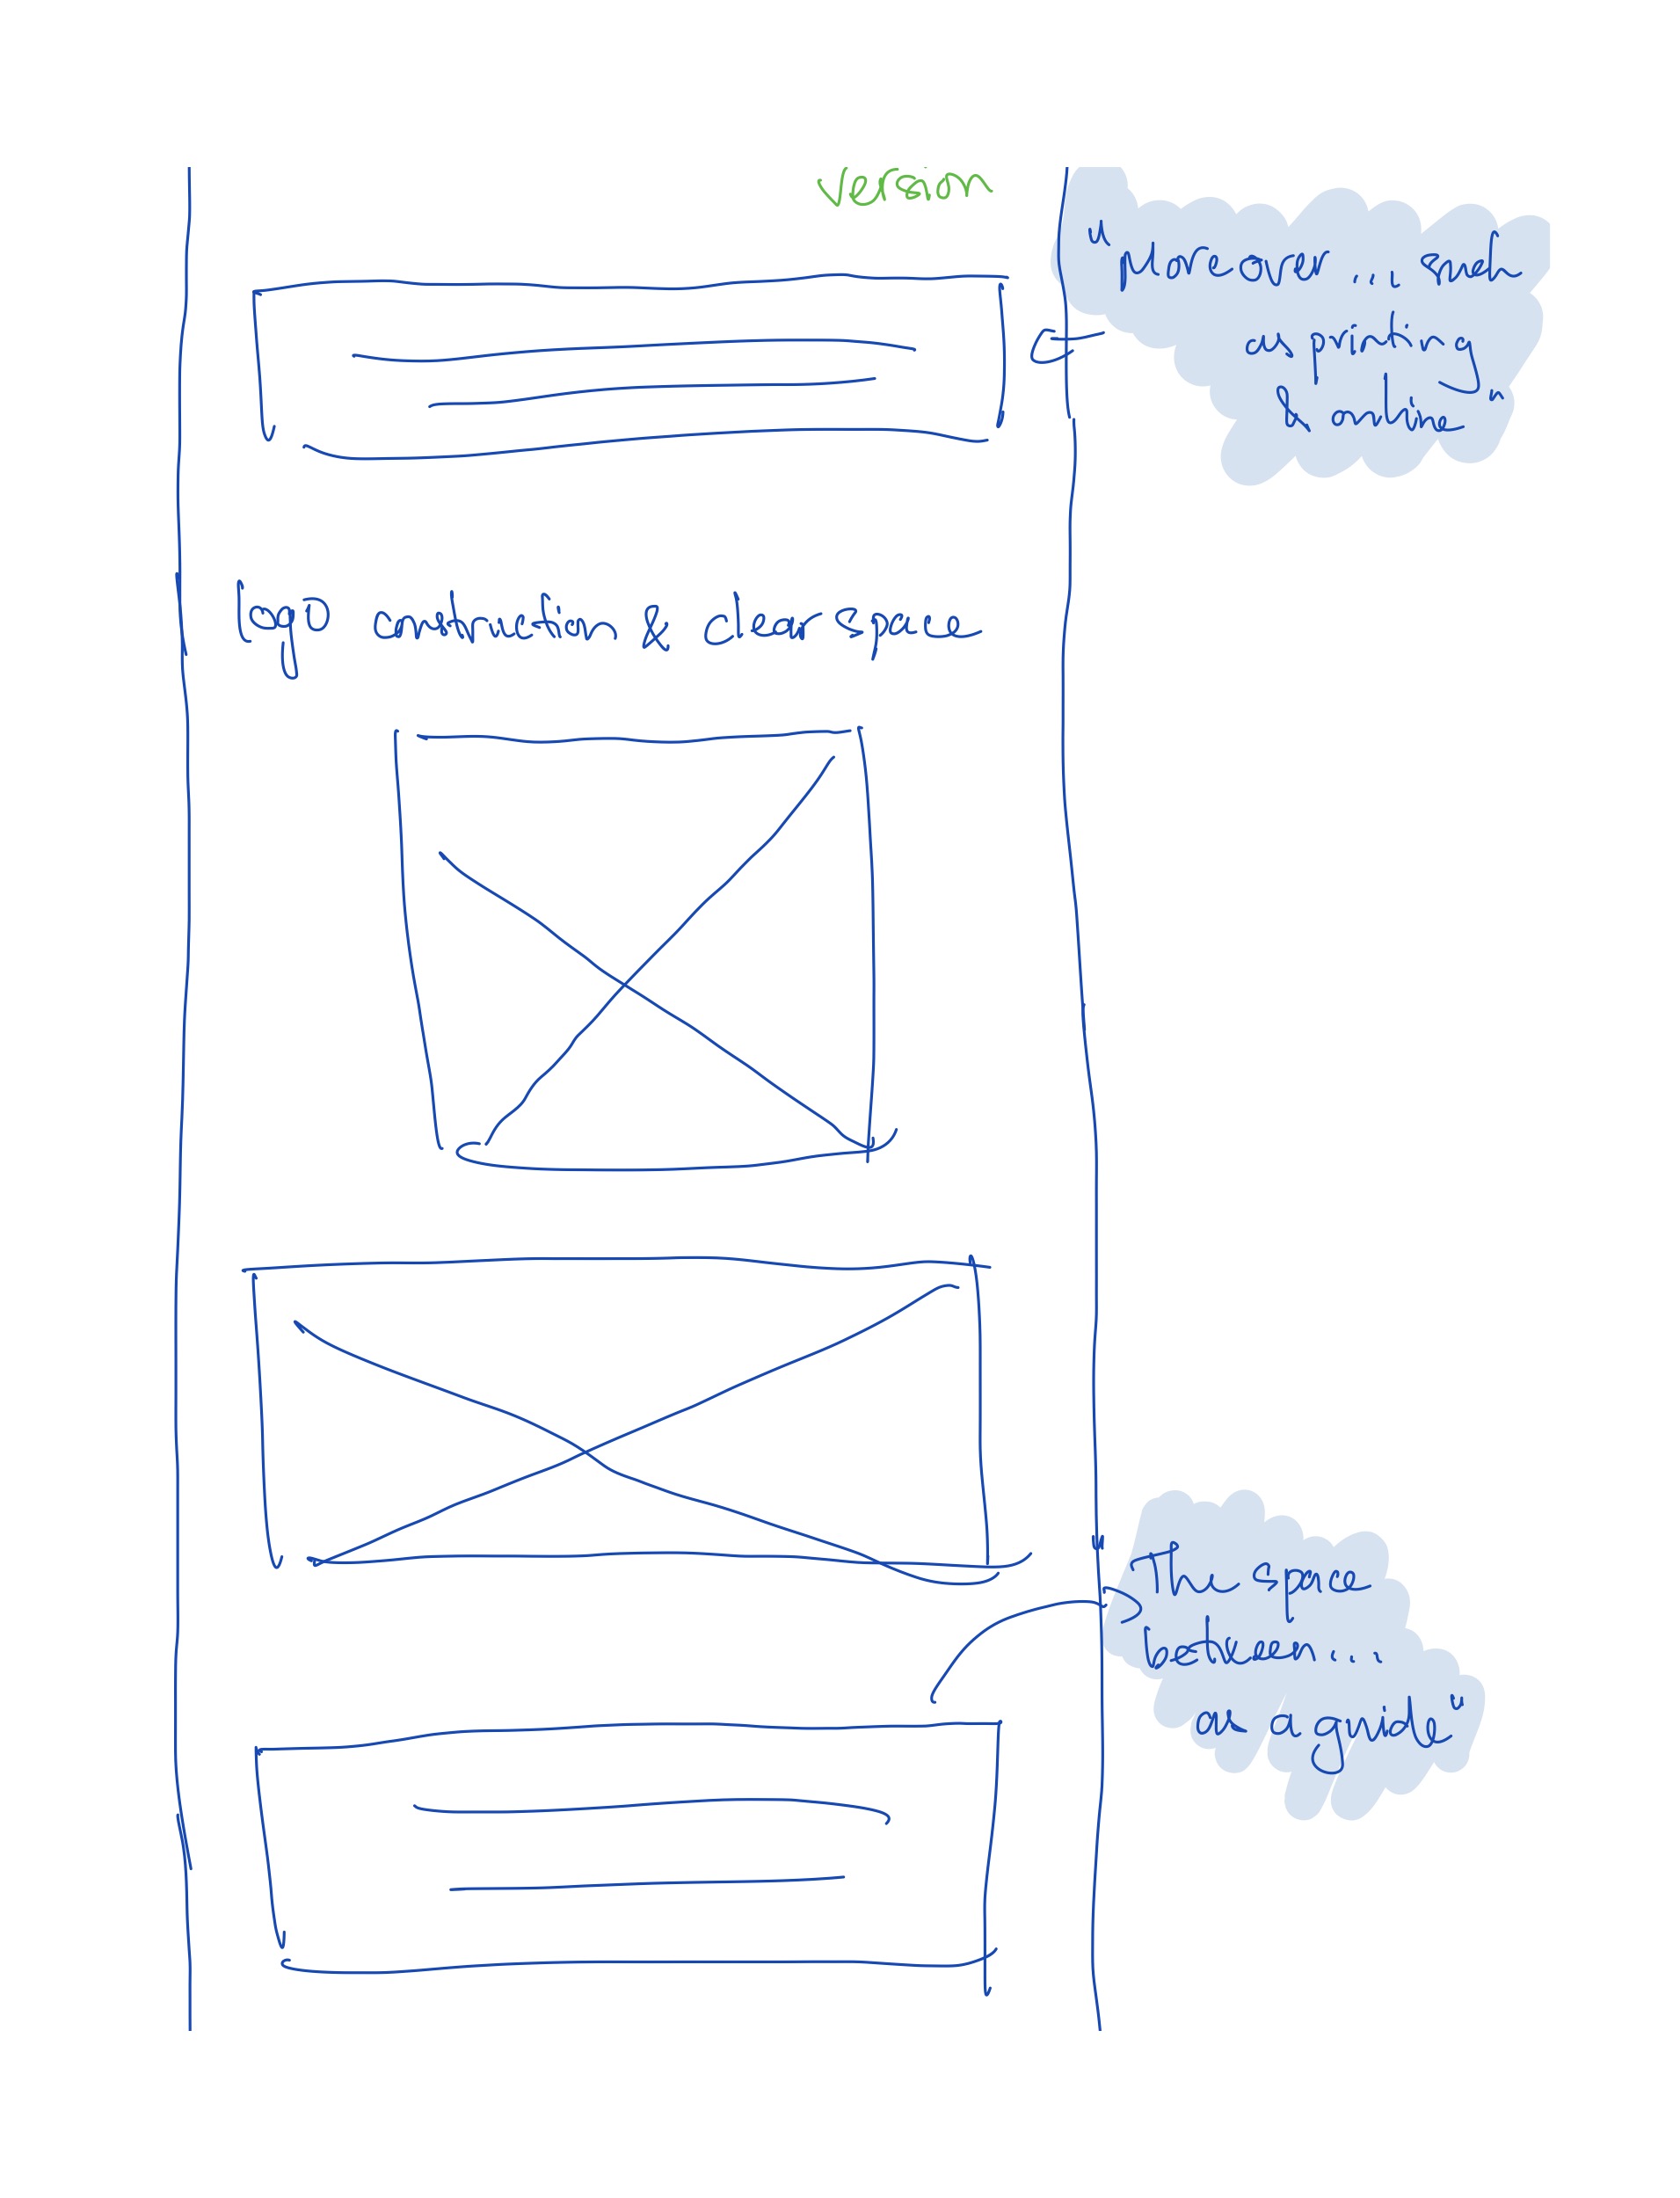 version
"Moreover ... such
as printing
& online"
logo construction & clearspace
"The space
between ...
as a guide"